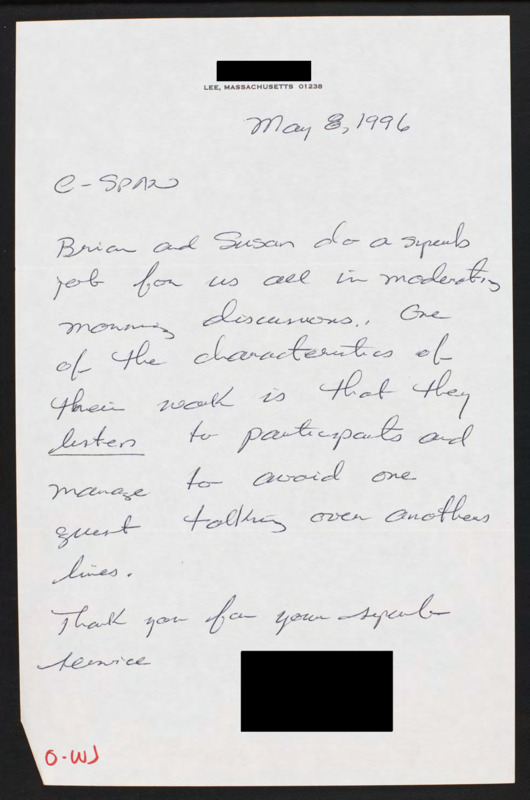 LEE, MASSACHUSETTS 01238
May 8, 1996
C-SPAN
Brian and Susan do a superb
job for us all in moderating
morning discussions. One
of the characteristics of
their work is that they
listen to participants and
manage to avoid one
guest talking over anothers
lines.
Thank you for your superb
service
O-WJ